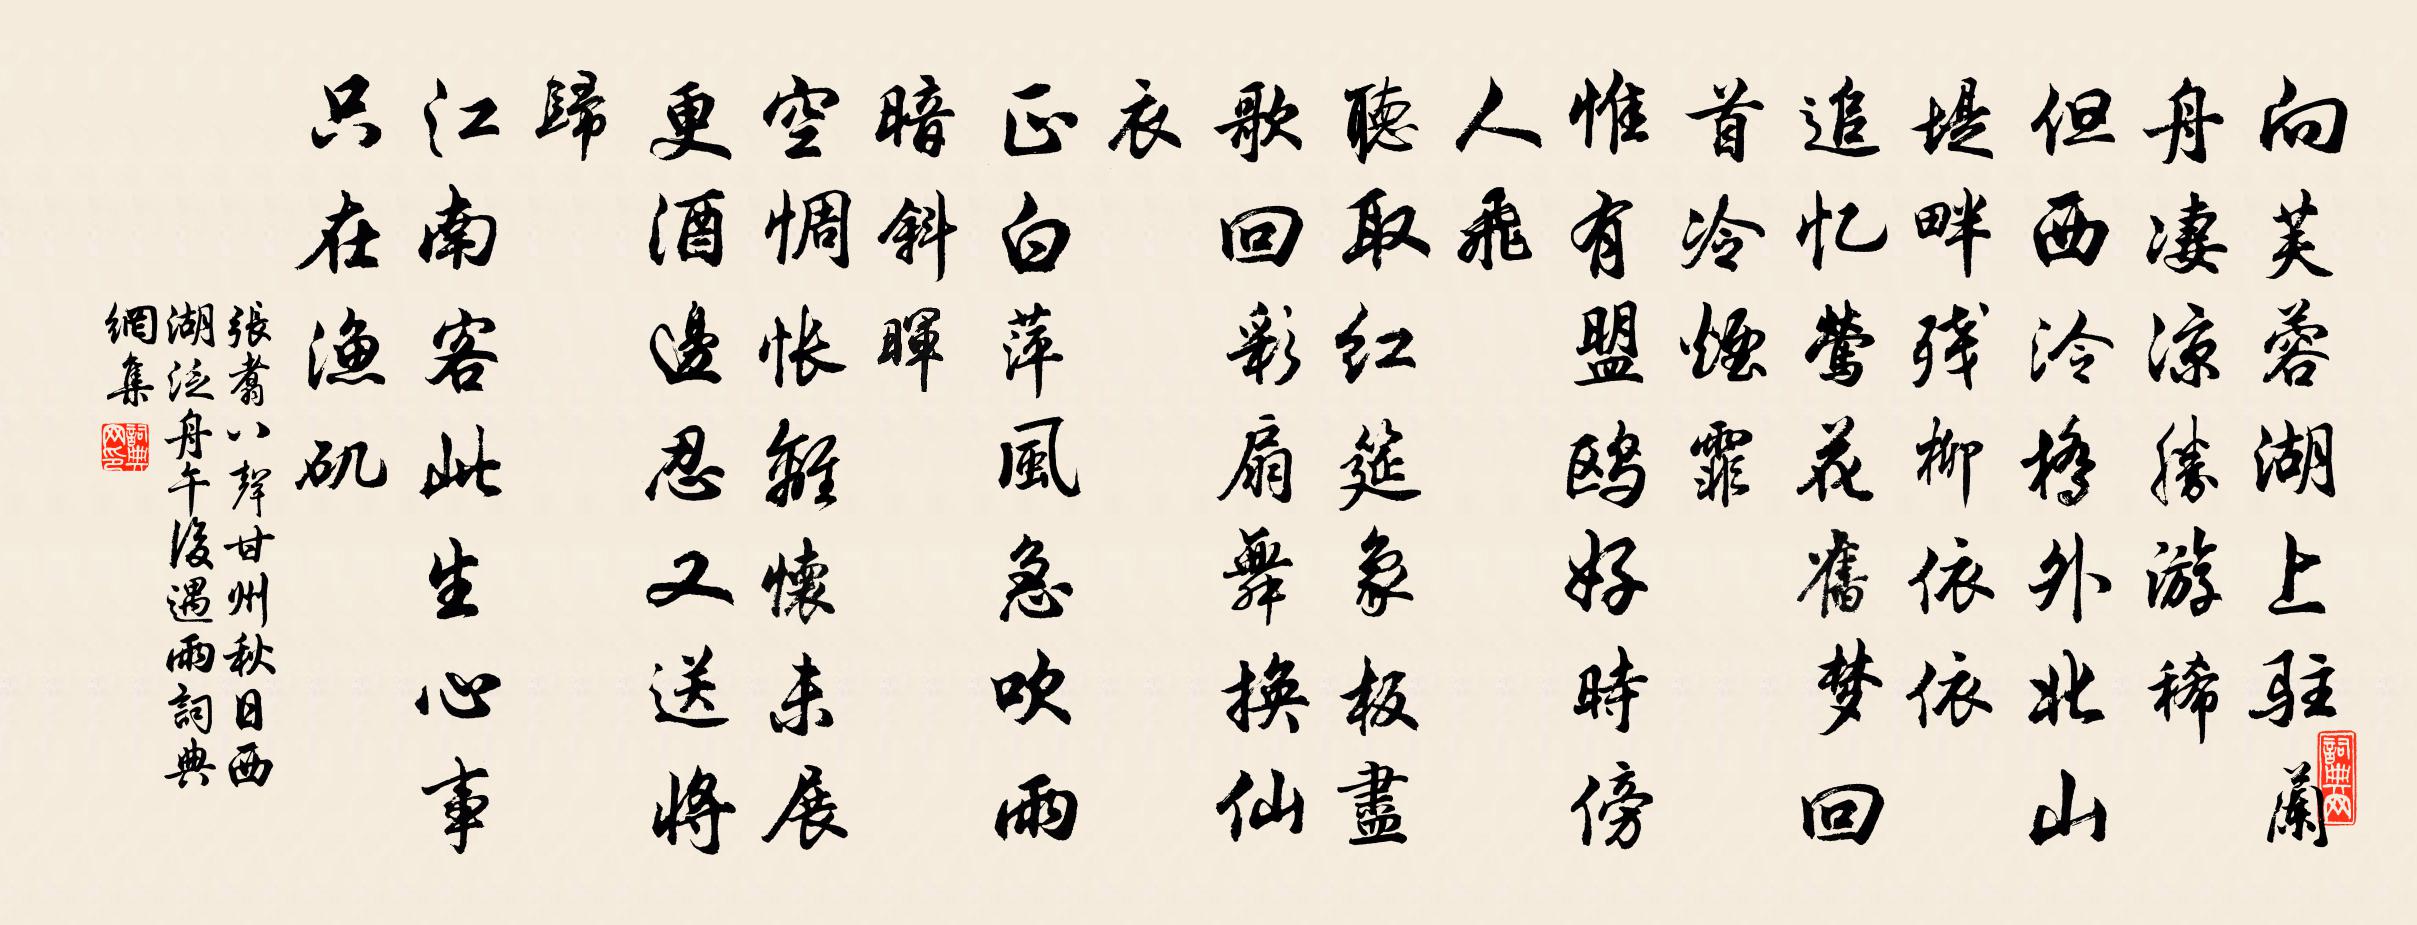 向芙蓉湖上驻蘭
舟淒涼勝游稀
但西泠橋外北山
堤畔残柳依依
追忆鶯花舊梦回
首冷煙霏
惟有盟鸥好時傍
人飛
聴取红筵象板盡
歌回彩扇舞换仙
衣
正白萍風急吹雨
暗斜暉
空惆怅離懷未展
更酒邊忍又送將
歸
江南客此生心事
只在漁矶
張翥八聲甘州秋日西
湖泛舟午後遇雨詞典
網集
詞典网
詞典网印